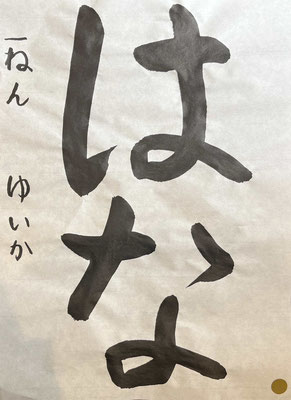 はな
一ねん ゆいか